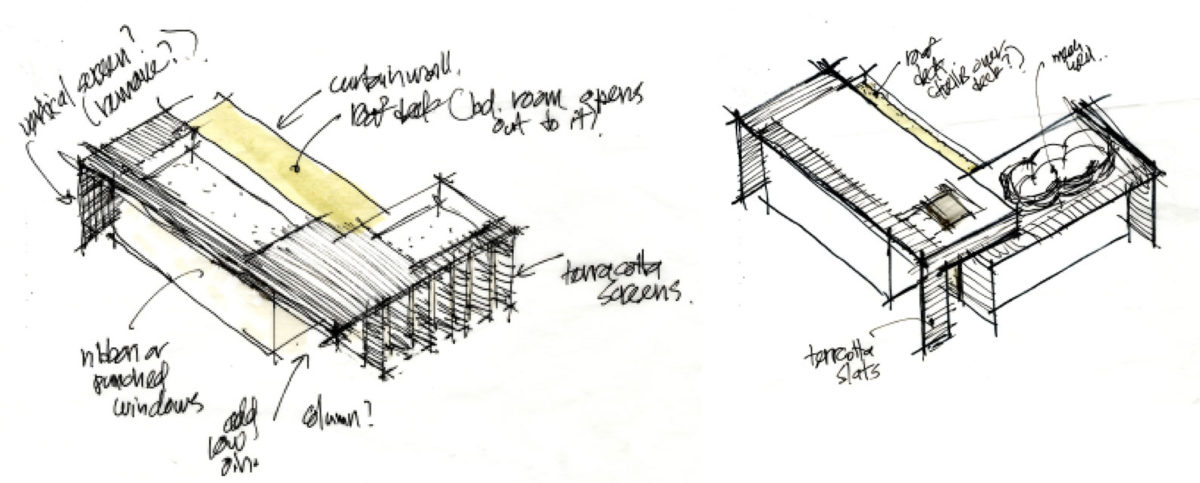 vertical screen?
(remove?)
curtain wall.
roof deck (bd. room opens
out to it).
terracotta
screens.
ribbon or
punched
windows
add
low
column?
roof
deck
over
deck?)
mesh
terracotta
slats